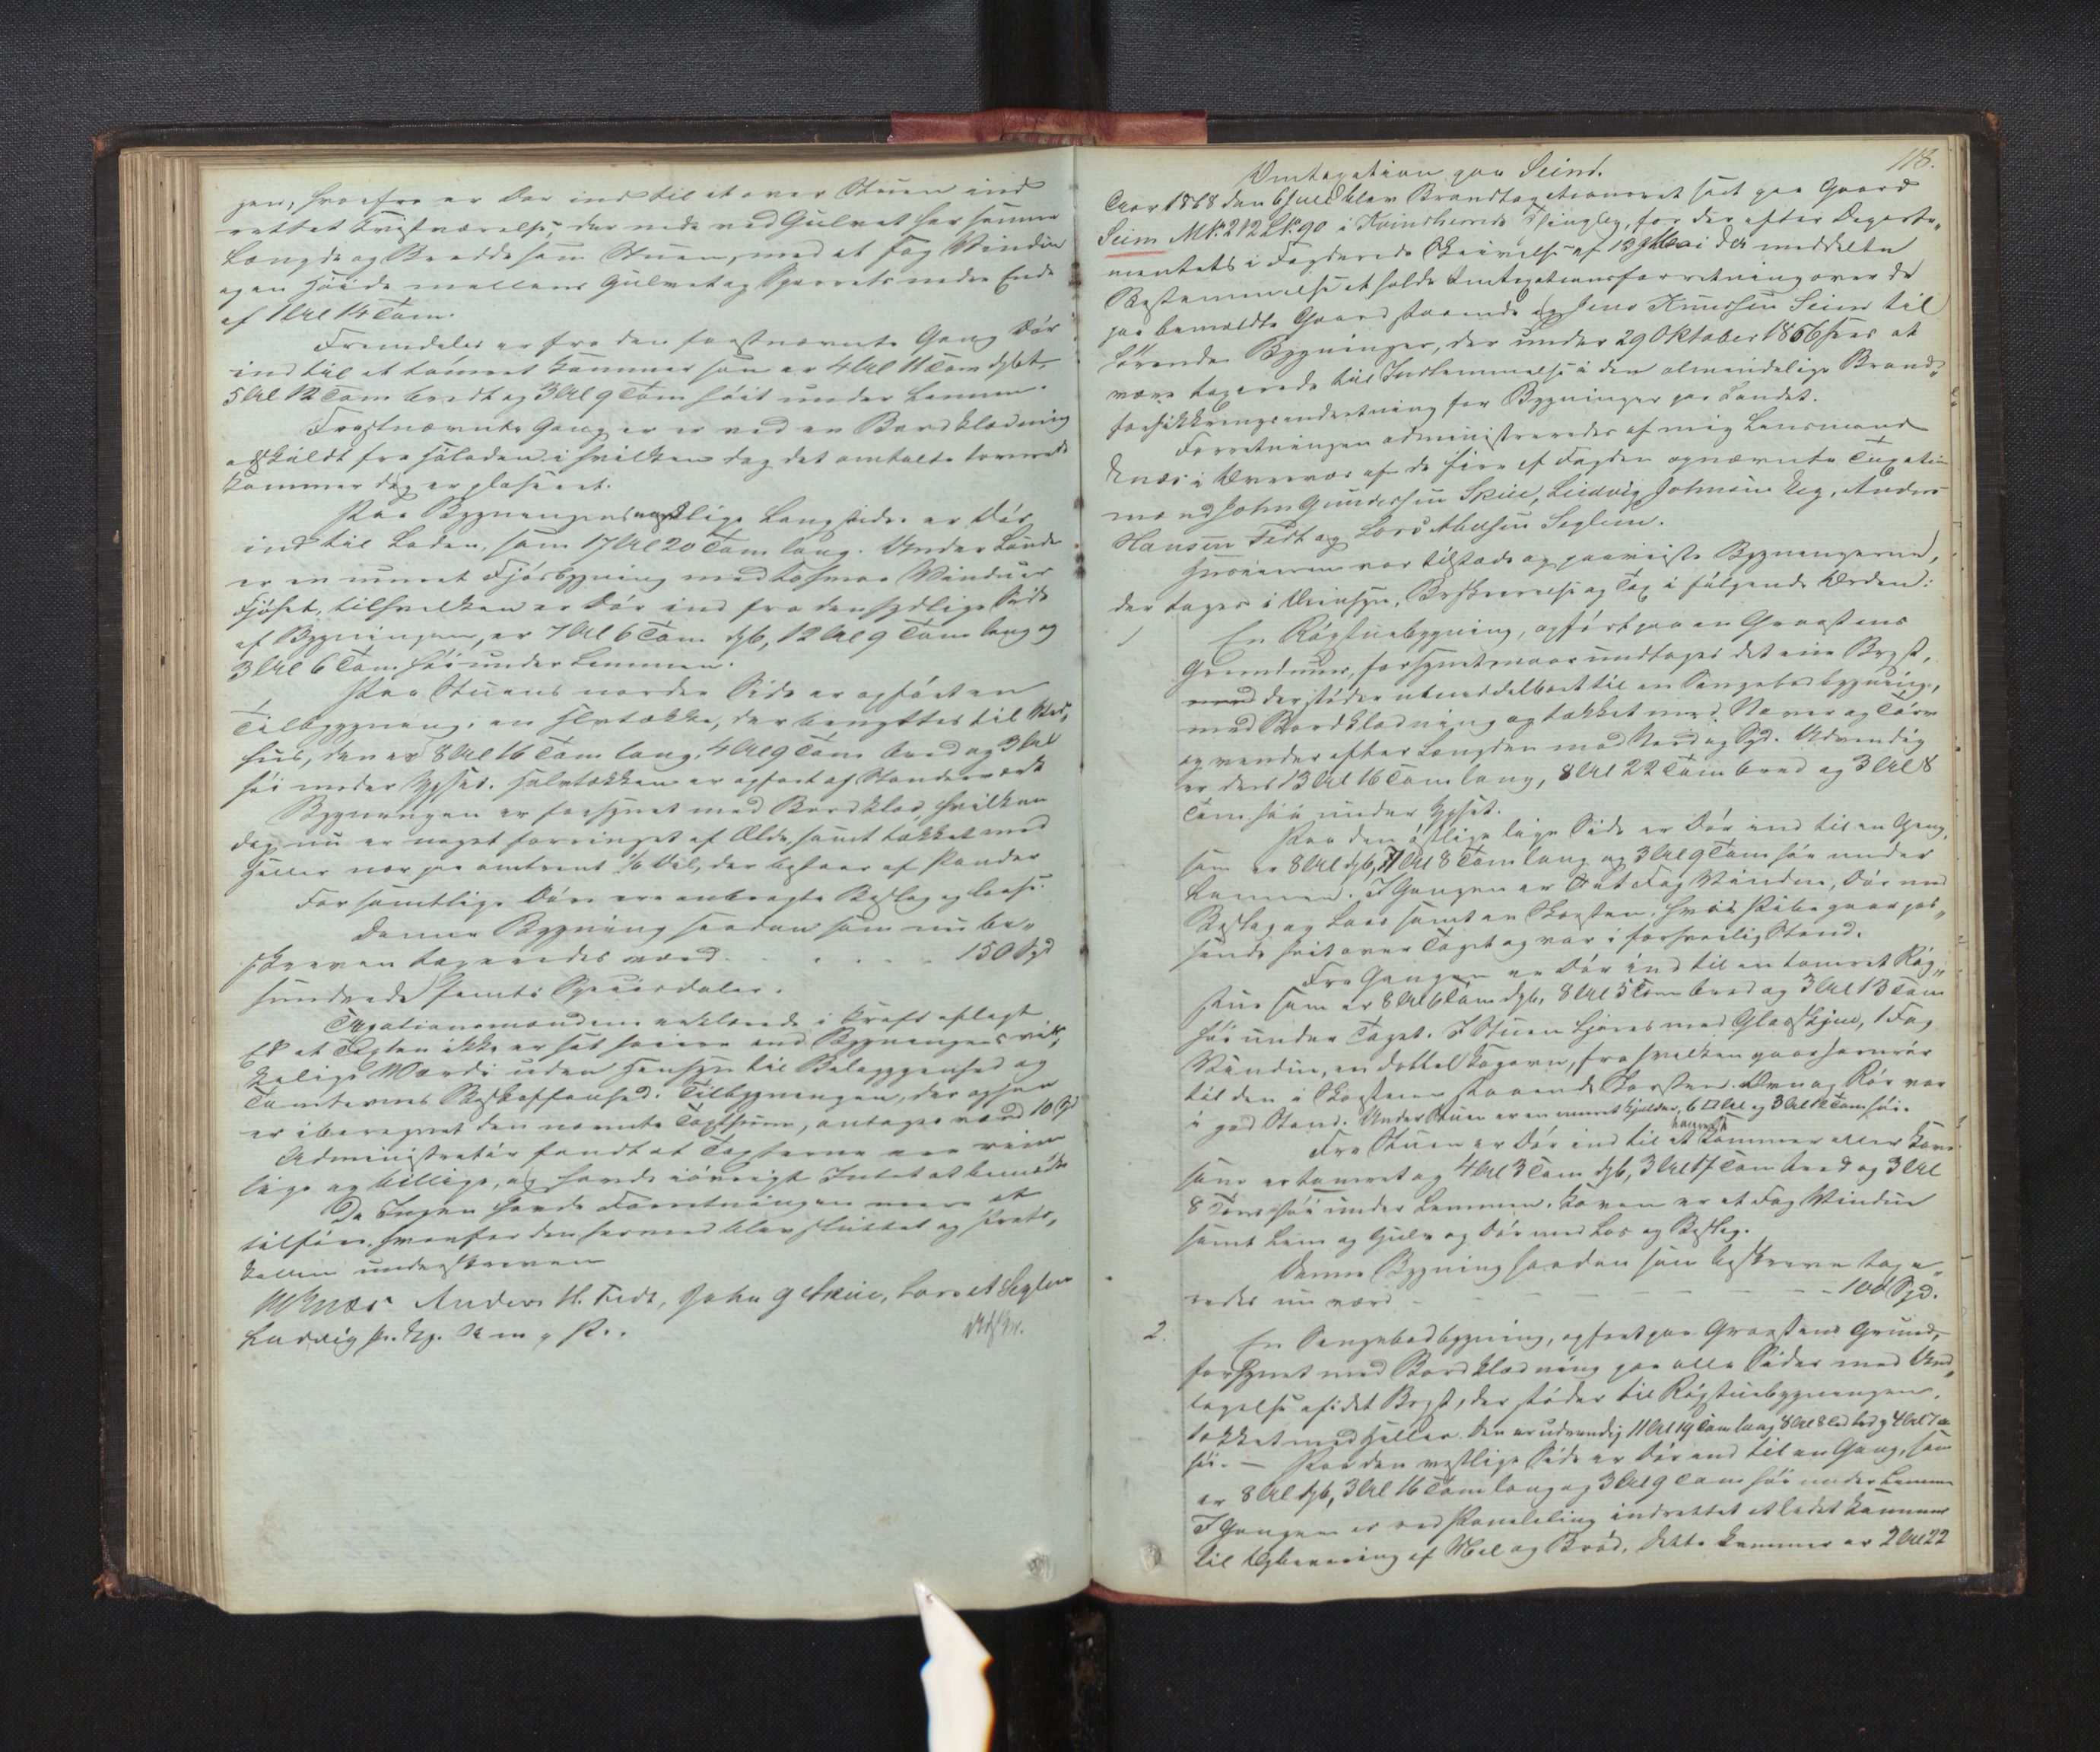 gen, hvorfra er Dør ind til et over Stuen ind
rettet Qvistværelse, der nede ved Gulvet har samme
Længde og Bredde som Stuen, med et Fag Vindue
og en Høide mellem Gulvet og Sperrets nedre Ende
af 1 Al 14 Tom.
Fremdeles er fra den førstnævnte Gang Dør
ind til et tømret Kammer som er 4 Al 11 Tom dybt,
5 Al 12 Tom bredt og 3 Al 9 Tom høit under Lemmen.
Førstnævnte Gang er ved en Bordklædning
adskildt fra Høladen i hvilken dog det omtalte tømrede
Kammer dog er placeret.
Paa Bygningens vestlige Langside er Dør
ind til Laden, som 17 Al 20 Tom lang. Under Laden
er en muret Fjøsbygning med to smaa Vinduer
Fjøset, til hvilken er Dør ind fra den sydlige Side
af Bygningen, er 7 Al 6 Tom dyb, 12 Al 9 Tom lang og
3 Al 6 Tom høi under Lemmen.
Paa Stuens nordre Side er opført en
Tilbygning, en Halvtække, der benyttes til Ved,
huus, den er 8 Al 16 Tom lang, 4 Al 9 Tom bred og 3 Al
høi under Gesims. Halvtækken er opført af Standerværk
Bygningen er forsynet med Bordklæd, hvilken
dog nu er noget forringet af Ælde, samt tækket med
Heller nær paa omtrent 1/6 Del, der bestaar af Pander
For samtlige Døre ere anbragte Beslag og Laase.
Denne Bygning saadan som nu be„
skreven taxeredes værd . . . . . . 150 Spd
hundrede femti Speciedaler.
Taxationsmændene erklærede i Kraft aflagt
Ed at Taxten ikke er sat høiere end Bygningens vir„
kelige Værdi uden Hensyn til Beliggenhed og
Tomternes Beskaffenhed. Tilbygningen, der ogsaa
er iberegnet den nævnte Taxtsum, antages værd 10 Spd
Administrator fandt at Taxterne ere rime
lige og billige, og havde iøvrigt Intet at bemærke
Da Ingen havde Forretningen mere at
tilføie, hvorfor den hermed blev sluttet og Proto„
kollen underskreven
Knæs Anders H. Fedt, John G Skeie, Lars A Seglem
Ludvig J. Eeg. m. p. P..
118.
Omtaxation paa Seim.
Aar 1868 den 6 Juli blev Brandtaxationsret sat paa Gaard
Seim M No 212 L No 90 i Kvindherreds Thinglag, for der efter Departe„
mentets i Fogderids Skrivelse af 13 Mai d A meddelte
Bestemmelse at holde Omtaxationsforretning over de
paa bemeldte Gaard staaende og Jens Knudsen Seim til
hørende Bygninger, der under 29 Oktober 1866 sees at
være taxerede til Indlemmelse i den almindelige Brand„
forsikkringsindretning for Bygninger paa Landet.
Forretningen administreredes af mig Lensmand
Knæs i Overvær af de fire af Fogden opnævnte Taxations
mænd John Gundersen Skeie, Ludvig Johnsen Eeg, Anders
Hansen Fedt og Lars Abelsen Seglem.
Huseieren var tilstede og paaviiste Bygningerne,
der toges i Øiesyn, Beskrivelse og Tax i følgende Orden:
1 En Røgstuebygning, opført paa en Graastens
Grundmur, forsynet naar undtages det ene Bryst,
der støder umiddelbart til en Sengebodbygning,
med Bordklædning og tækket med Næver og Törv
og vender efter Længden mod Nord og Syd. Udvendig
er den 13 Al 16 Tom lang, 8 Al 22 Tom bred og 3 Al 8
Tom høi under Gesims.
Paa den østlige lange Side er Dør ind til en Gang,
som er 8 Al dyb, 7 Al 8 Tom lang og 3 Al 9 Tom høi under
Lemmen. I Gangen er et Fag Vindue, Dør med
Beslag og Laas samt en Skorsten, hvis Pibe gaar pas„
sende høit over Taget og var i forsvarlig Stand.
Fra Gangen er Dør ind til en tømret Røg„
stue som er 8 Al 6 Tom dyb, 8 Al 5 Tom bred og 3 Al 13 Tom
høi under Taget. I Stuen Ljores med Glasskjaa, 1 Fag
Vindue, en dobbel Kogovn, fra hvilken gaar Jernrør
til den i Skorsten staaende Skorsten. Ovn og Rør var
i god Stand. Under Stuen er en muret Kjelder, 6 □ Al og 3 Al 12 Tom høi.
Fra Stuen er Dør ind til et tømret Kammer eller Kove
som er tømret og 4 Al 3 Tom dyb, 3 Al 17 Tom bred og 3 Al
8 Tom høi under Lemmen. Koven er et Fag Vindue
samt Lem og Gulv og Dør med Laas og Beslag.
Denne Bygning saadan som beskreven taxe„
redes nu værd - - - - - - - 100 Spd.
2. En Sengebodbygning, opført paa Graastens Grund,
forsynet med Bordklædning paa alle Sider med Und„
tagelse af det Bryst, der støder til Røgstuebygningen,
tækket med Heller. Den er udvendig 11 Al 19 Tom lang 8 Al 8 Tom bred og 4 Al 7 Tom
høi. — Paa den vestlige Side er Dør ind til en Gang, som
er 8 Al dyb, 3 Al 16 Tom lang og 3 Al 9 Tom høi under Lemmen
I Gangen er ved Paneling indrettet et lidet Kammer
til Opbevaring af Mel og Brød. Dette Kammer er 2 Al 22